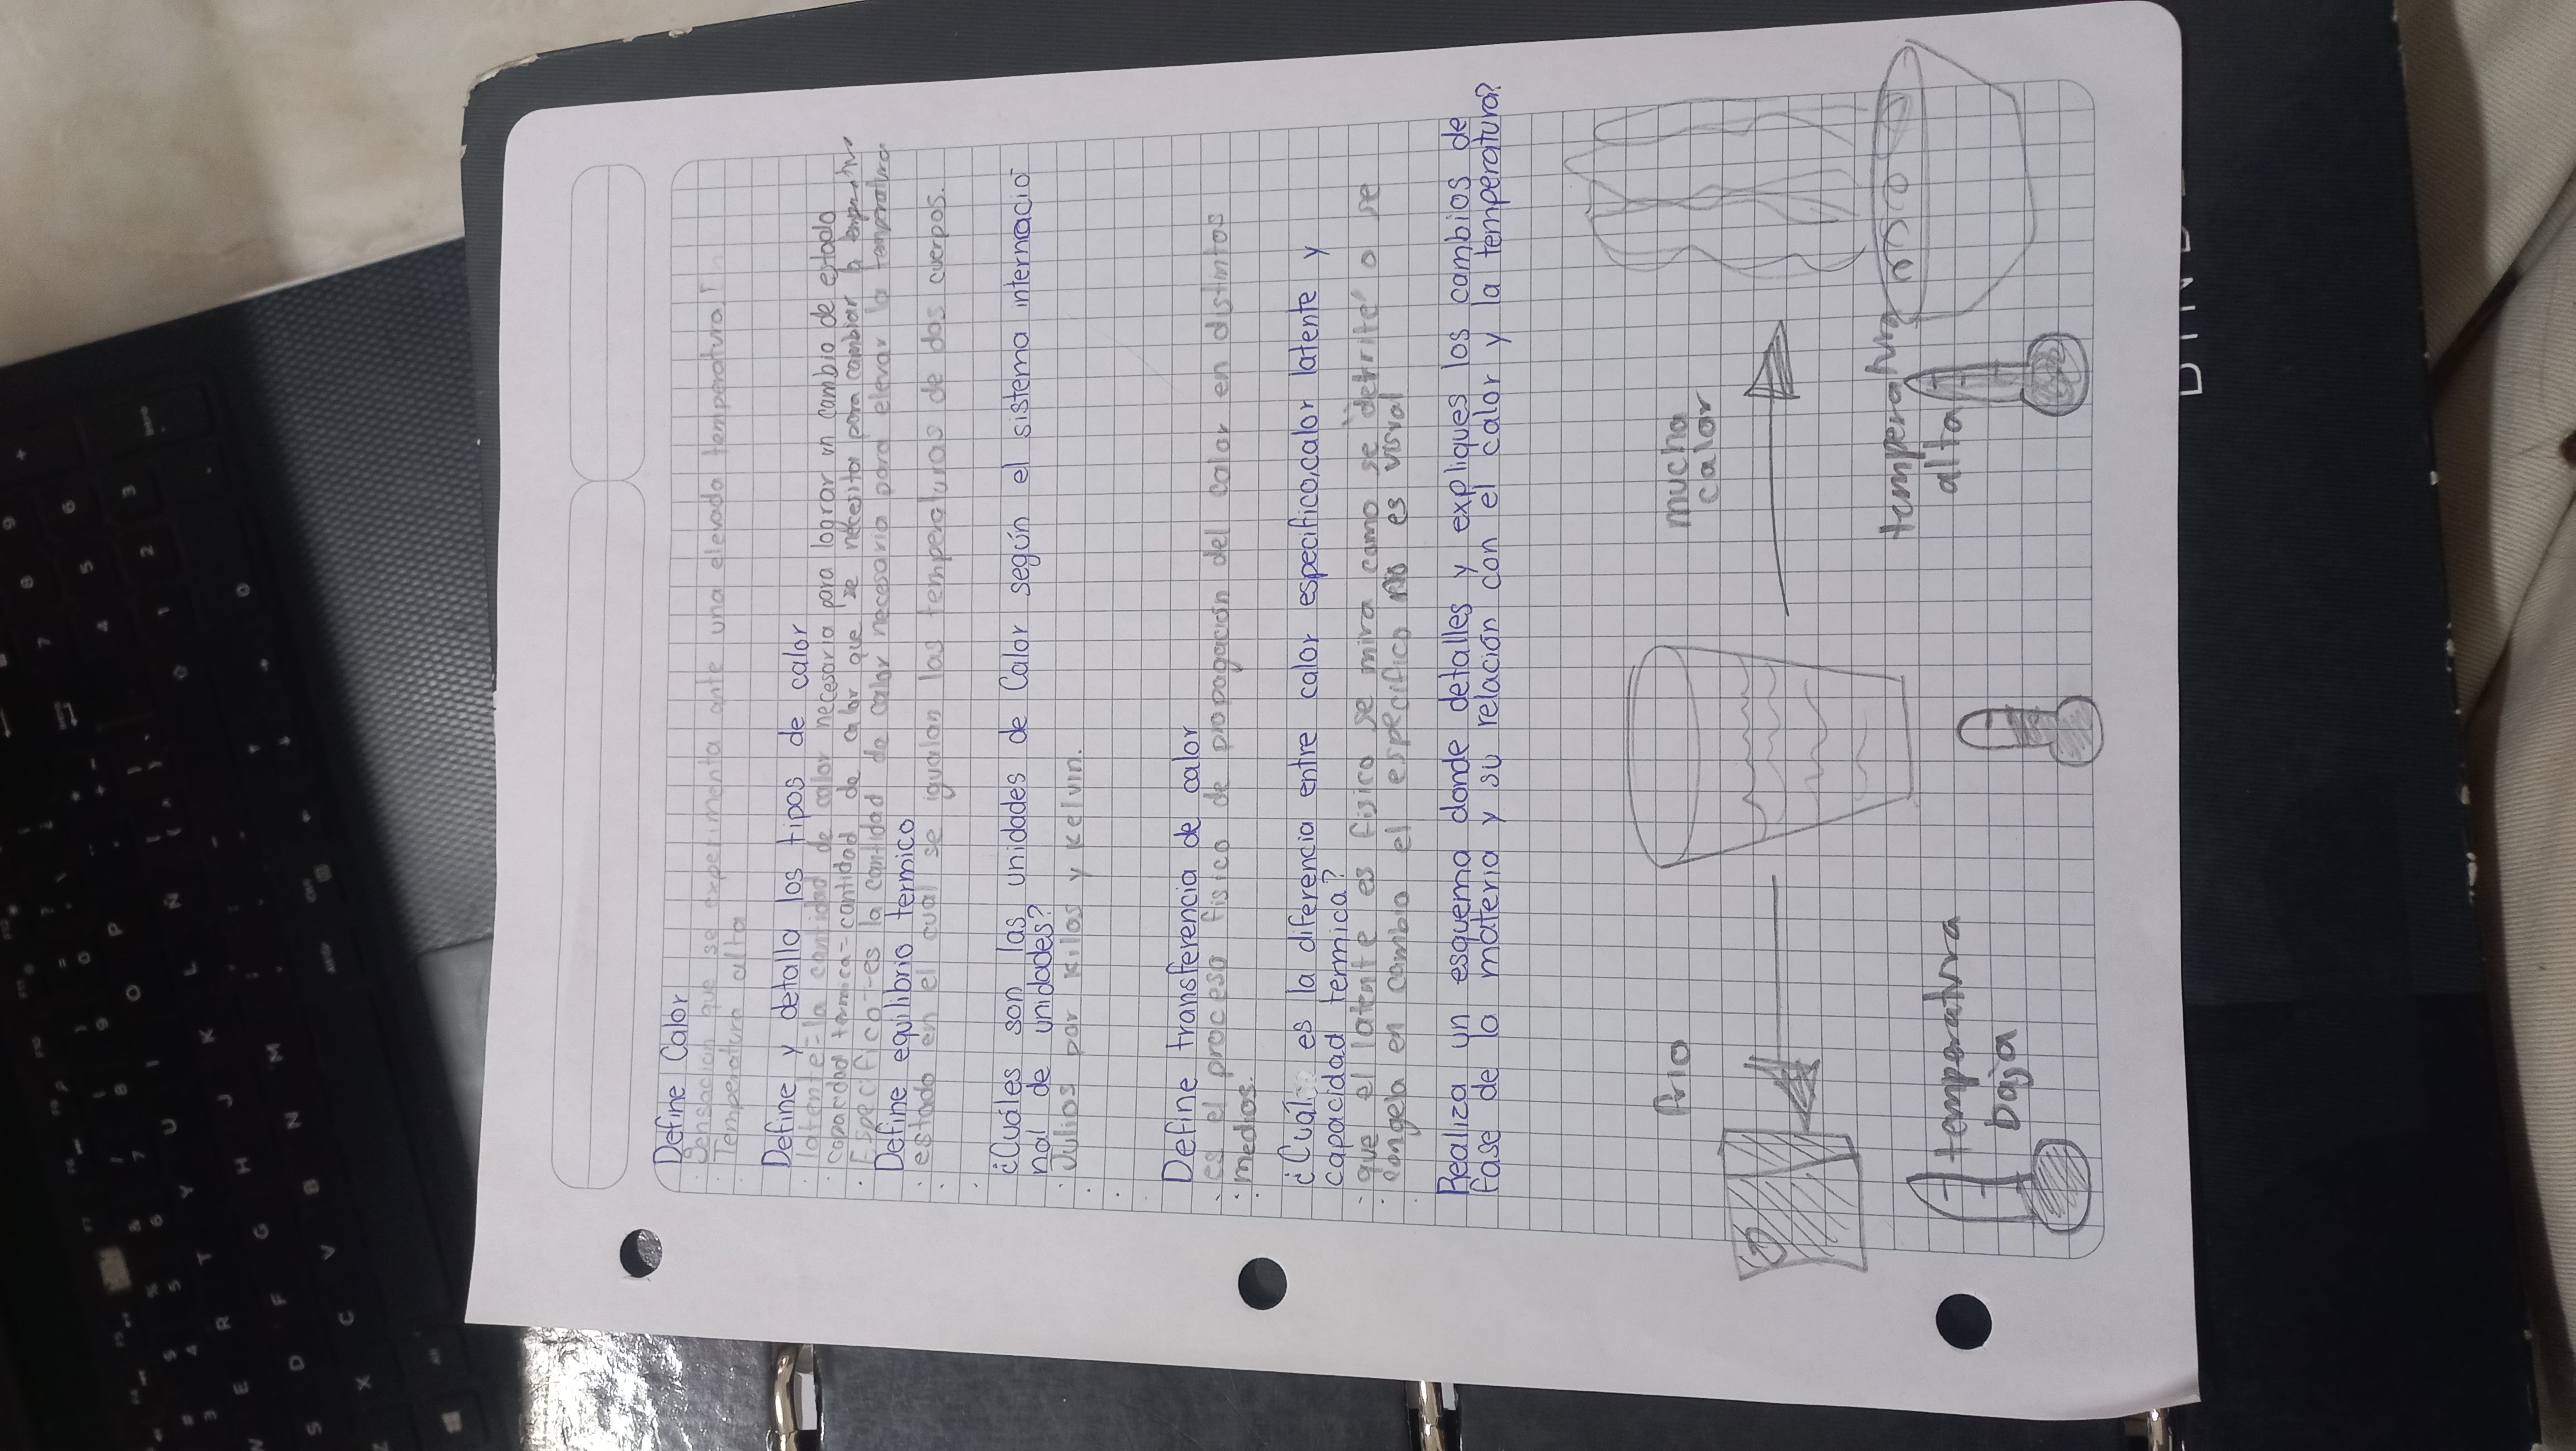 Define Calor
Sensacion que se experimenta ante una elevada temperatura.
Temperatura alta
Define y detalla los tipos de calor
latente= la cantidad de calor necesaria para lograr un cambio de estado
capacidad termica= cantidad de calor que se necesita para cambiar
Especifico= es la cantidad de calor necesario para elevar la temperatura
Define equilibrio termico
estado en el cual se igualan las temperaturas de dos cuerpos.
¿Cuáles son las unidades de Calor según el sistema internacio
nal de unidades?
Julios por kilos y kelvin.
Define transferencia de calor
es el proceso fisico de propagación del calor en distintos
medos.
¿Cuál es la diferencia entre calor especifico,calor latente y
capacidad termica?
que el latente es fisico se mira como se detrite o se
congela en cambio el especifico no es visual
Realiza un esquema donde detalles y expliques los cambios de
fase de la materia y su relación con el calor y la temperatura?
frio
mucho
calor
temperatura
baja
temperatura
alta